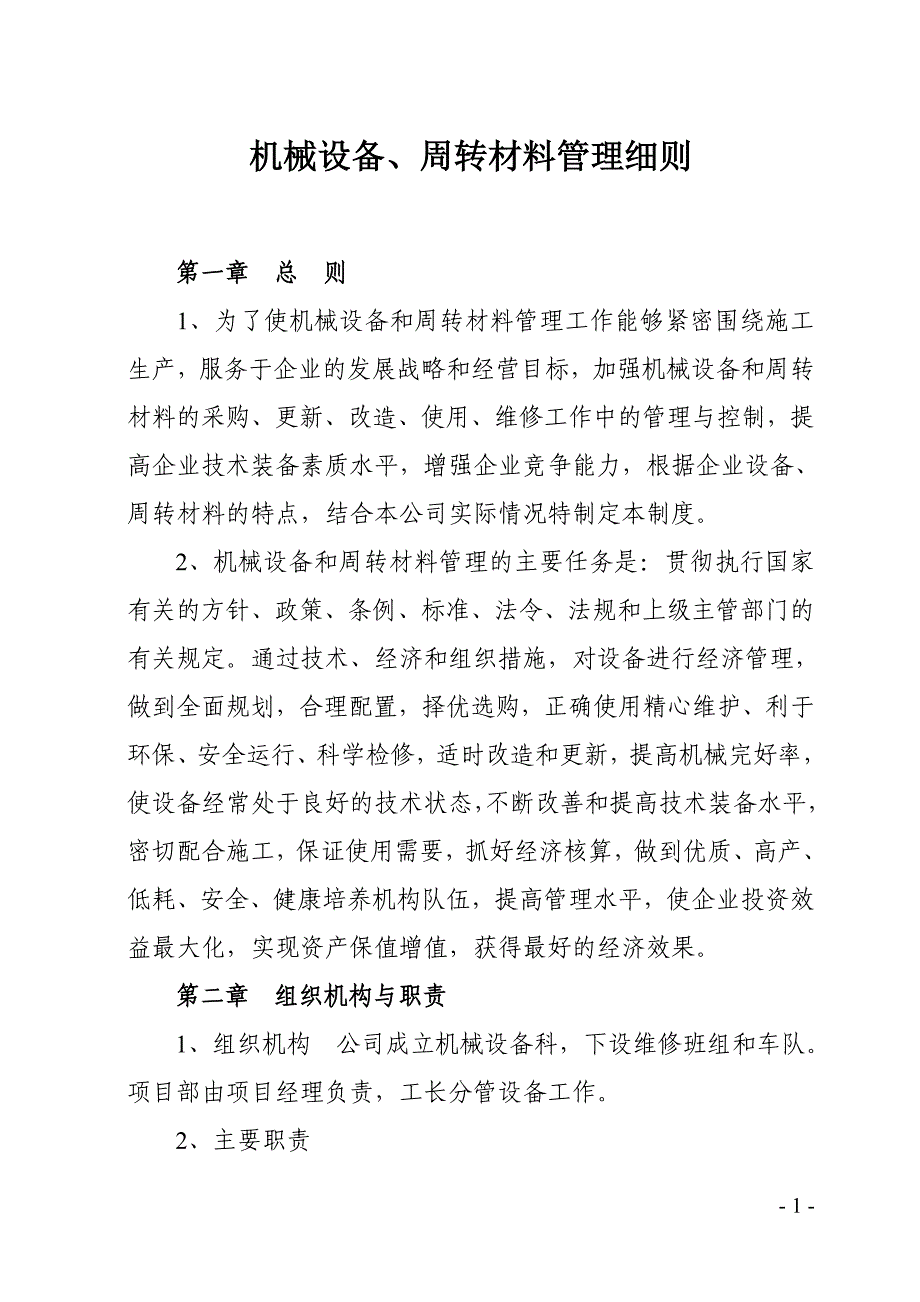 机械设备、周转材料管理细则
第一章　总　则
1、为了使机械设备和周转材料管理工作能够紧密围绕施工
生产，服务于企业的发展战略和经营目标，加强机械设备和周转
材料的采购、更新、改造、使用、维修工作中的管理与控制，提
高企业技术装备素质水平，增强企业竞争能力，根据企业设备、
周转材料的特点，结合本公司实际情况特制定本制度。
2、机械设备和周转材料管理的主要任务是：贯彻执行国家
有关的方针、政策、条例、标准、法令、法规和上级主管部门的
有关规定。通过技术、经济和组织措施，对设备进行经济管理，
做到全面规划，合理配置，择优选购，正确使用精心维护、利于
环保、安全运行、科学检修，适时改造和更新，提高机械完好率，
使设备经常处于良好的技术状态，不断改善和提高技术装备水平，
密切配合施工，保证使用需要，抓好经济核算，做到优质、高产、
低耗、安全、健康培养机构队伍，提高管理水平，使企业投资效
益最大化，实现资产保值增值，获得最好的经济效果。
第二章　组织机构与职责
1、组织机构　公司成立机械设备科，下设维修班组和车队。
项目部由项目经理负责，工长分管设备工作。
2、主要职责
- 1 -